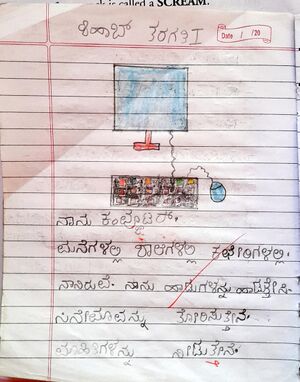 k is called a SCREAM.
ಶಿಹಾಬ್ ತರಗತಿ I
Date / /20
ನಾನು ಕಂಪ್ಯೂಟರ್.
ಮನೆಗಳಲ್ಲಿ ಶಾಲೆಗಳಲ್ಲಿ ಕಛೇರಿಗಳಲ್ಲಿ
ನಾನಿರುವೆ. ನಾನು ಹಾಡುಗಳನ್ನು ಹಾಡುತ್ತೇನೆ.
ಸಿನೇಮಾವನ್ನು ತೋರಿಸುತ್ತೇನೆ.
ಮಾಹಿತಿಗಳನ್ನು ನೀಡುತ್ತೇನೆ.